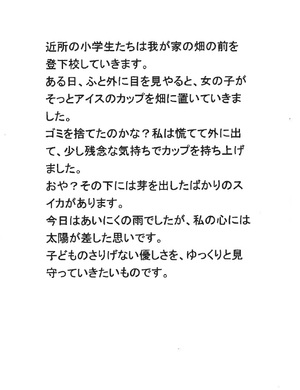 近所の小学生たちは我が家の畑の前を
登下校していきます。
ある日、ふと外に目を見やると、女の子が
そっとアイスのカップを畑に置いていきま
した。
ゴミを捨てたのかな？私は慌てて外に出
て、少し残念な気持ちでカップを持ち上げ
ました。
おや？その下には芽を出したばかりのス
イカがあります。
今日はあいにくの雨でしたが、私の心には
太陽が差した思いです。
子どものさりげない優しさを、ゆっくりと見
守っていきたいものです。